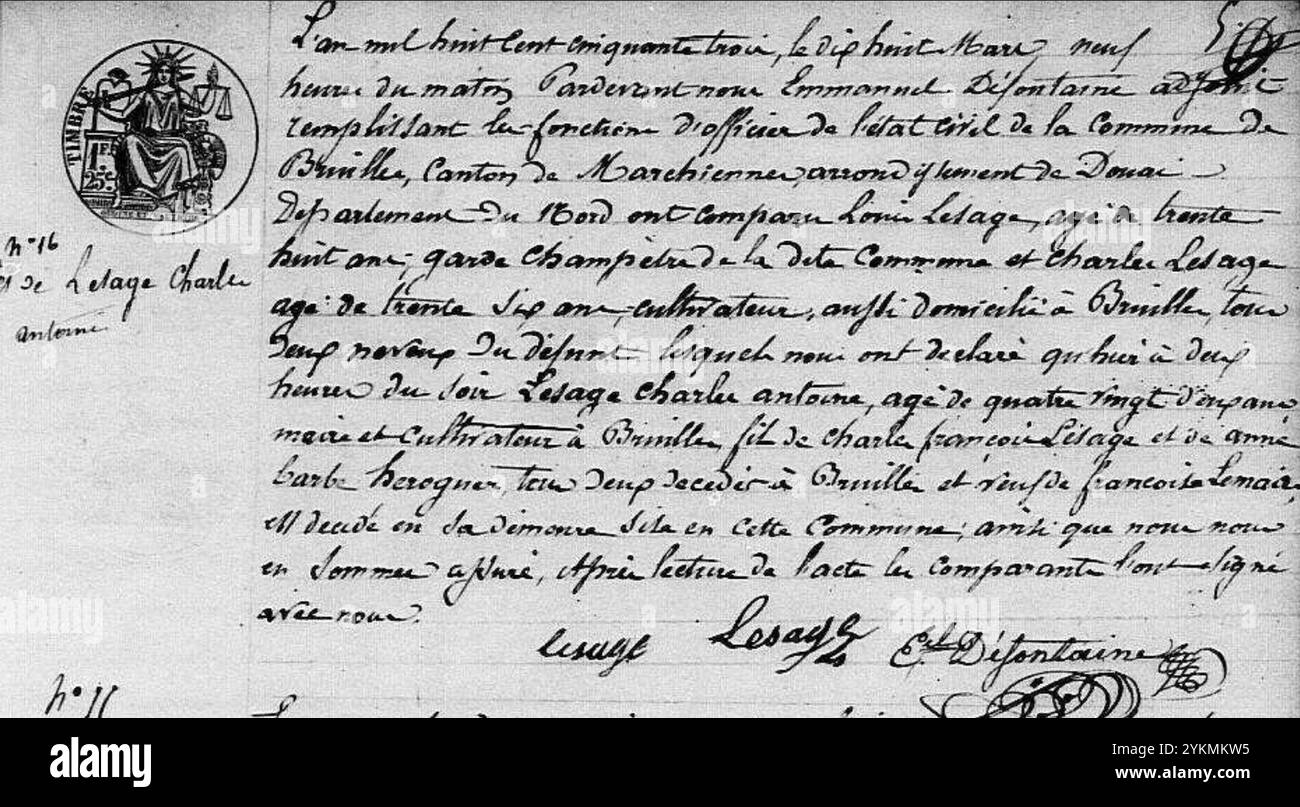 L'an mil huit cent cinquante trois, le dix huit Mars neuf
heures du matin Pardevant nous Emmanuel Désfontaine adjoint
remplissant les fonctions d'officier de l'état civil de la Commune de
Bruille, Canton de Marchiennes, arrondissement de Douai
Département du Nord ont comparu Louis Lesage, agé de trente
huit ans, garde champêtre de la dite Commune et Charles Lesage
agé de trente six ans, cultivateur, aussi domicilié à Bruille, tous
deux neveux du défunt lesquels nous ont declaré qu'hier à deux
heures du soir Lesage Charles antoine, agé de quatre vingt deux ans
maire et Cultivateur à Bruille, fils de Charles françois Lesage et de anne
barbe heroguer, tous deux decedés à Bruille et veuf de francoise Lemaire,
est decedé en sa demeure site en cette Commune; ainsi que nous nous
en sommes assuré, Après lecture de l'acte les comparants l'ont signé
avec nous.
lesage Lesage Et. Désfontaine
TIMBRE
1 FR
25 C.
N° 16
de Lesage Charles
antoine
N°
alamy
alamy
Image ID: 2YKMKW5
www.alamy.com